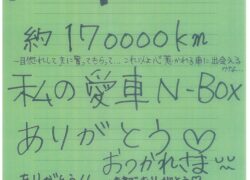 約170000km
一目惚れして 買ってもらって... これ以上心惹かれる車に出会える
かな...
私の愛車N-Box
ありがとう♡
おつかれさま